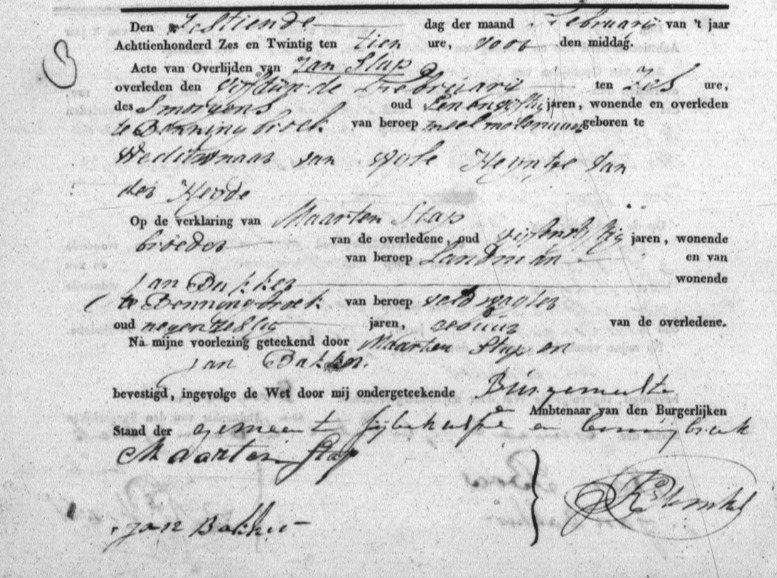 Den Zestiende dag der maand Februarij van 't jaar
Achttienhonderd Zes en Twintig ten tien ure, voor den middag.
Acte van Overlijden van Jan Slap
overleden den vijftiende Februarij ten Zes ure,
des Smorgens oud jaren, wonende en overleden
te Benningbroek van beroep meelmolenaar geboren te
Weduwnaar van wyle Heyntje van
der Heyde
Op de verklaring van Maarten Slap
broeder van de overledene, oud jaren, wonende
van beroep Landman en van
Jan Bakker wonende
te Benningbroek van beroep veldwagter
oud negenzestig jaren, gebuur van de overledene.
Na mijne voorlezing geteekend door Maarten Slap en
Jan Bakker.
bevestigd, ingevolge de Wet door mij ondergeteekende Burgemeester
Ambtenaar van den Burgerlijken
Stand der gemeente Sijbekarspel en Benningbroek
Maarten Slap
Jan Bakker